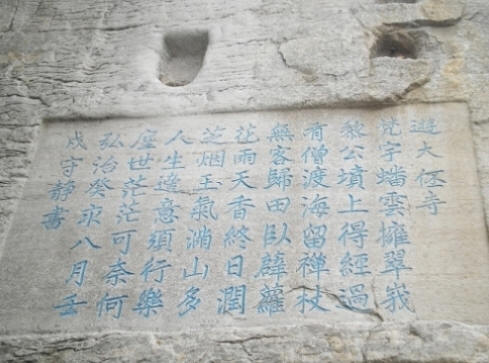 遊大伾寺
梵宇蟠雲擁翠峩
黎公墳上得經過
有僧渡海留禪杖
無客歸田臥薜蘿
花雨天香終日潤
芝烟玉氣滿山多
人生達意須行樂
塵世茫茫可奈何
弘治癸亥八月壬
戌守靜書